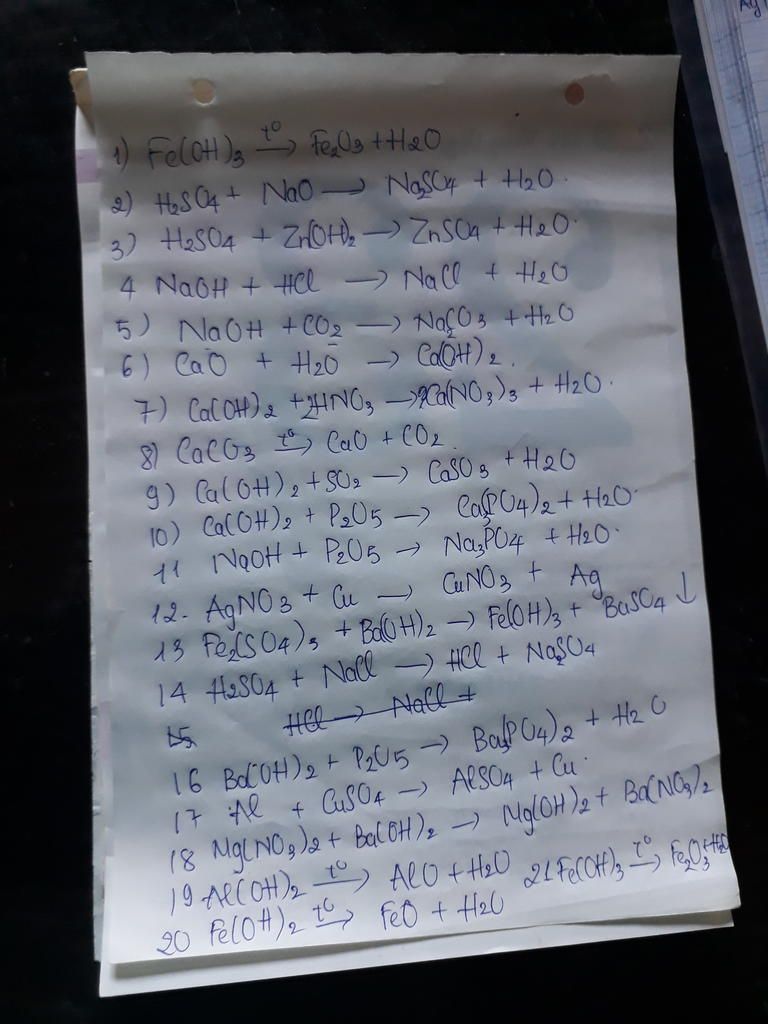 1) Fe(OH)3 t° → Fe2O3 + H2O
2) H2SO4 + NaO → Na2SO4 + H2O.
3) H2SO4 + Zn(OH)2 → ZnSO4 + H2O.
4 NaOH + HCl → NaCl + H2O
5) NaOH + CO2 → Na2CO3 + H2O
6) CaO + H2O → Ca(OH)2.
7) Ca(OH)2 + 2HNO3 → 2Ca(NO3)3 + H2O.
8) CaCO3 t° → CaO + CO2
9) Ca(OH)2 + SO2 → CaSO3 + H2O
10) Ca(OH)2 + P2O5 → Ca3(PO4)2 + H2O.
11 NaOH + P2O5 → Na3PO4 + H2O.
12. AgNO3 + Cu → CuNO3 + Ag
13 Fe2(SO4)3 + Ba(OH)2 → Fe(OH)3 + BaSO4 ↓
14 H2SO4 + NaCl → HCl + Na2SO4
15 HCl → NaCl +
16 Ba(OH)2 + P2O5 → Ba3(PO4)2 + H2O
17 Al + CuSO4 → AlSO4 + Cu.
18 Mg(NO3)2 + Ba(OH)2 → Mg(OH)2 + Ba(NO3)2
19 Al(OH)2 t° → AlO + H2O 21 Fe(OH)3 t° → Fe2O3 + H2O
20 Fe(OH)2 t° → FeO + H2O